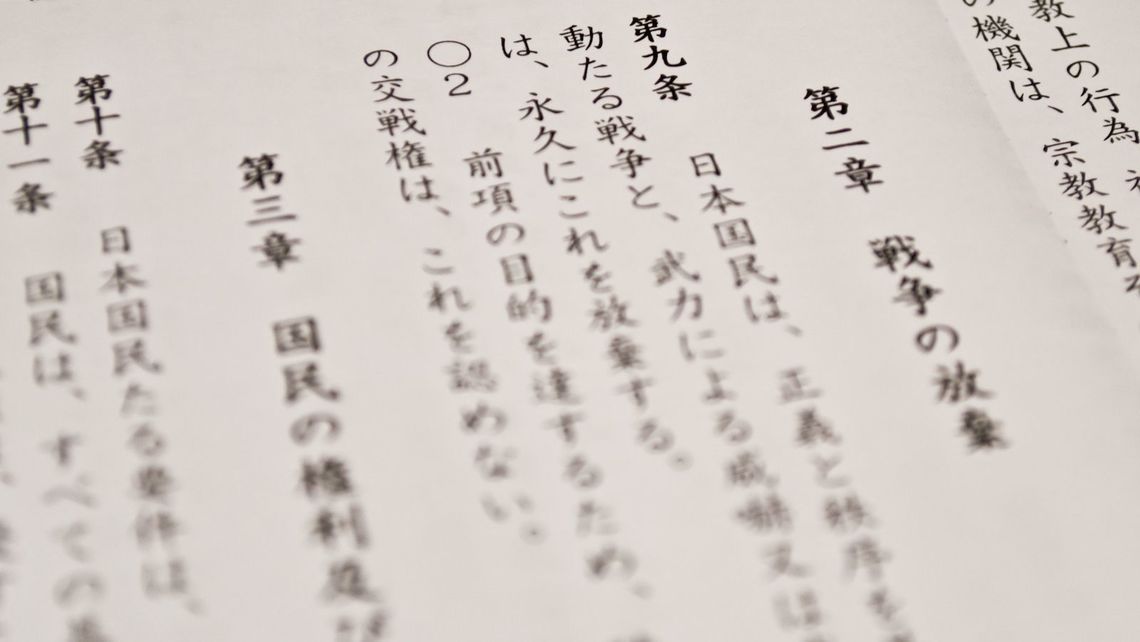 教上の行為
の機関は、宗教教育そ
第二章　戦争の放棄
第九条　日本国民は、正義と秩序を
動たる戦争と、武力による威嚇又は
は、永久にこれを放棄する。
○2　前項の目的を達するため、
の交戦権は、これを認めない。
第三章　国民の権利及び
第十条　日本国民たる要件は、
第十一条　国民は、すべての基